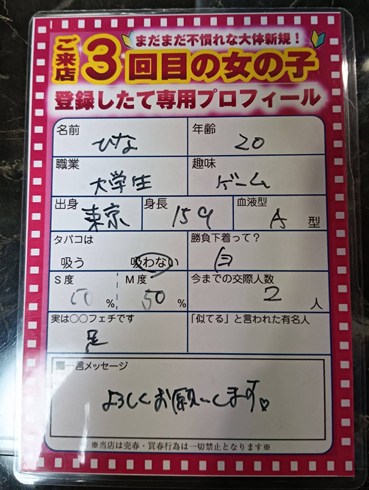 まだまだ不慣れな大体新規！
ご来店3回目の女の子
登録したて専用プロフィール
名前 年齢
ひな 20
職業 趣味
大学生 ゲーム
出身 身長 血液型
東京 159 A型
タバコは 勝負下着って？
吸う 吸わない 白
S度 M度 今までの交際人数
50% 50% 2人
実は○○フェチです 「似てる」と言われた有名人
足
一言メッセージ
よろしくお願いします
※当店は売春・買春行為は一切禁止となります※